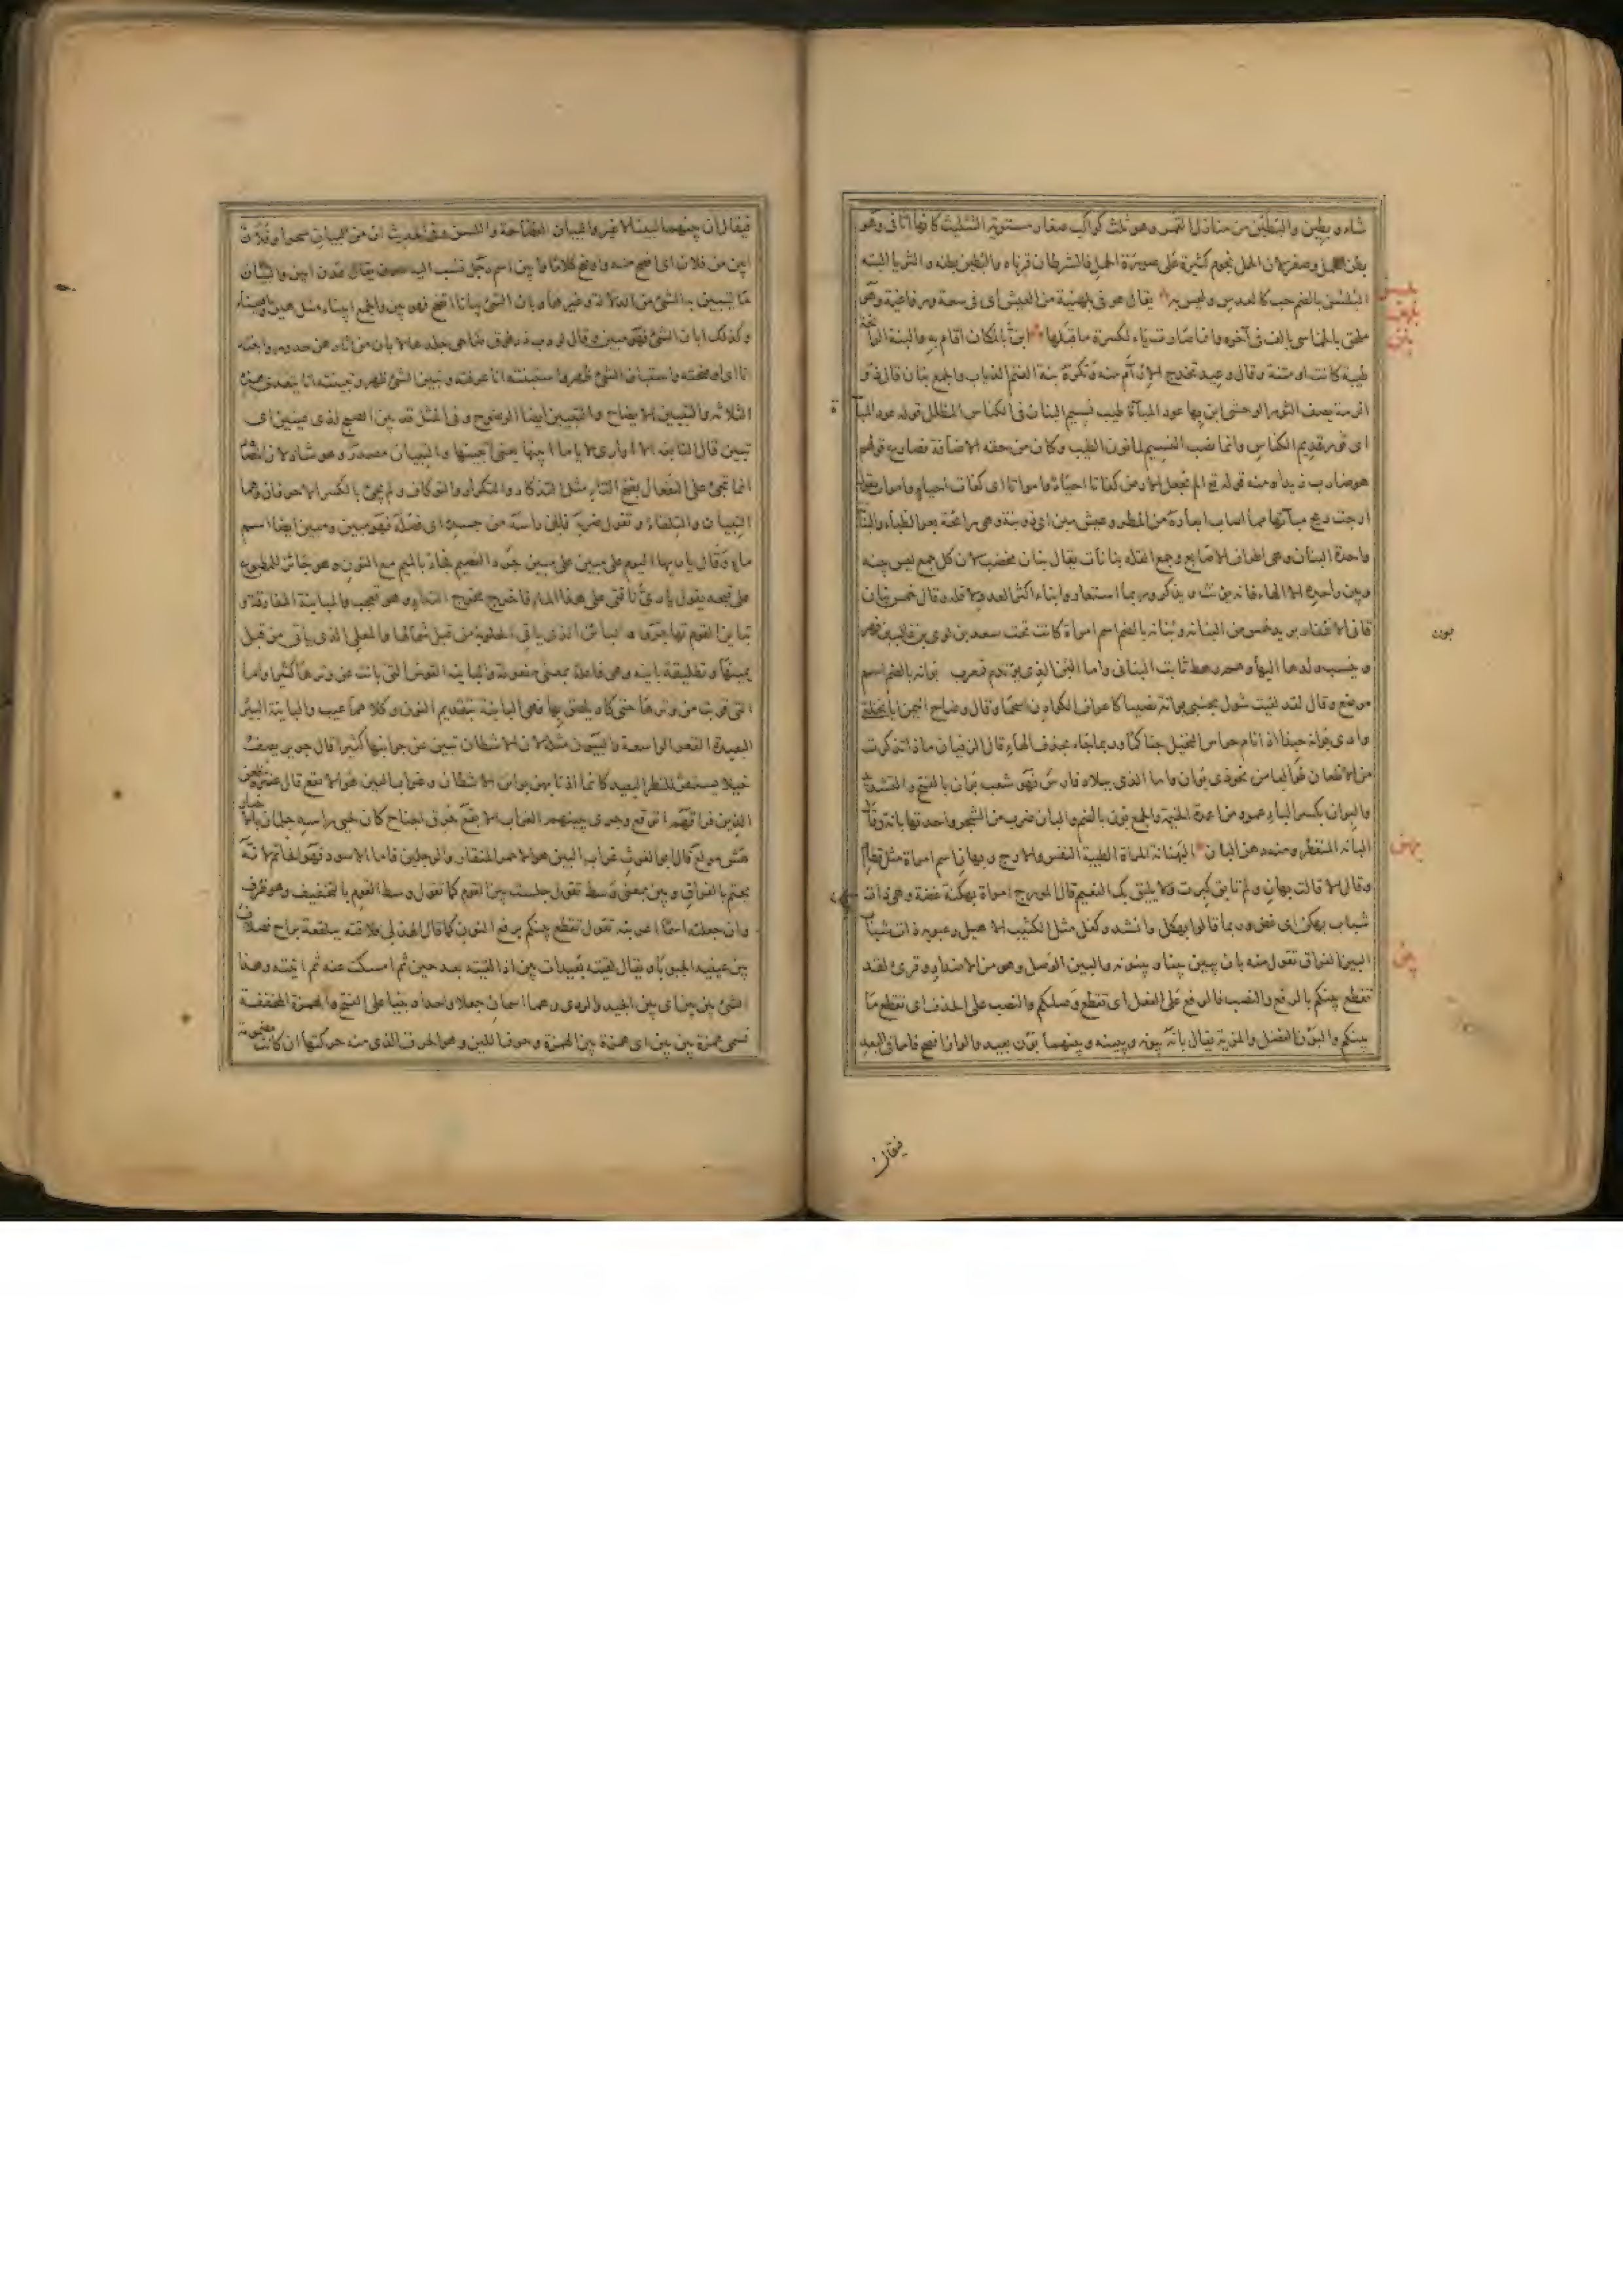 شاء و بطين والبطين من منازل القمر وهو ثلث كواكب صغار مستوية التثليث كانها اثافى وهو
بطن الحمل وصغر لان الحمل نجوم كثيرة على صورة الحمل فالشرطان قرناه والبطين بطنه والثريا اليته
البلسن بالضم حب كالعدس وليس به يقال هو فى بلهنية من العيش اى فى سعة ورفاغية وهو
ملحق بالخماسى بالف فى آخره وانما صارت ياء لكسرة ما قبلها ابن بالمكان اقام به والبنة الرائحة
طيبة كانت او منتنة وقال وعيد تخدج الارآم منه وتكره بنة الغنم الذياب والجمع بنان قال ذو
الرمة يصف الثور الوحشى ابن بها عود المباءة طيب نسيم البنان فى الكناس المظلل قوله عود المباءة
اى ثور قديم الكناس وانما نصب النسيم لما نون الطيب وكان من حقه الاضافة فضارع قولهم
هو ضارب زيدا ومنه قوله تع الم نجعل الارض كفاتا احياء وامواتا اى كفات احياء واموات يقول
ارجت ريح مباءتها مما اصاب ابعاره من المطر وعيش مبن اى ذو بنة وهى رائحة بعر الظباء والبنانة
واحدة البنان وهى اطراف الاصابع وجمع القلة بنانات يقال بنان مخضب لان كل جمع ليس بينه
وبين واحده الا الهاء فانه يذكر وربما استعاروا بناء اكثر العدد لاقله وقال خمس بنان
قانى الاظفار يريد خمس من البنان وبنانة بالضم اسم امراة كانت تحت سعد بن لوى بن غالب بن فهر
وينسب ولدها اليها وهم رهط ثابت البنانى واما البن الذى يوتدم فمعرب بوانة بالضم اسم
موضع وقال لقد لقيت شول بجنبى بوانة نصيا كاعراف الكوادن اسحما وقال وضاح اليمن ايا نخلة
وادى بوانة حبذا اذا نام حراس النخيل جناكما وربما جاء بحذف الهاء قال الزفيان ماذا تذكرت
من الاظعان طوالعا من نحو ذى بوان واما الذى ببلاد فارس فهو شعب بوان بالفتح والتشديد
والبوان بكسر الباء عمود من اعمدة الخيمة والجمع بون بالضم والبان ضرب من الشجر واحدتها بانة وقال
البانة المنفطر ومنه دهن البان البهنانة المراة الطيبة النفس والارج وبهان اسم امراة مثل قطام
وقال الا قالت بهان ولم تابق كبرت ولا يليق بك النعيم قال المورج امراة بهكنة غضة وهى ذات
شباب بهكن اى غض وربما قالوا بهكل وانشد وكفل مثل الكثيب الاهيل رعبوبة ذات شباب
البين الفراق تقول منه بان يبين بينا وبينونة والبين الوصل وهو من الاضداد وقرئ لقد
تقطع بينكم بالرفع والنصب فالرفع على الفعل اى تقطع وصلكم والنصب على الحذف اى تقطع ما
بينكم والبون الفضل والمزية يقال بانه يبونه ويبينه وبينهما بون بعيد والواو افصح فاما فى البعد
بلسن
بلهن
بنن
بون
بهن
بين
فيقال
فيقال ان بينهما لبينا لا غير والبيان الفصاحة واللسن وفى الحديث ان من البيان سحرا وفلان
ابين من فلان اى افصح منه واوضح كلاما وابين اسم رجل نسب اليه عدن يقال عدن ابين والبيان
ما تبين به الشئ من الدلالة وغيرها وبان الشئ بيانا اتضح فهو بين والجمع ابيناء مثل هين واهيناء
وكذلك ابان الشئ فهو مبين وقال لو دب ذر فوق ضاحى جلدها لابان من اثارهن حدور وابنته
انا اى اوضحته واستبان الشئ ظهر واستبنته انا عرفته وتبين الشئ ظهر وتبينته انا يتعدى هذه
الثلاثة والتبيين الايضاح والتبيين ايضا الوضوح وفى المثل قد بين الصبح لذى عينين اى
تبين قال النابغة الا اوارى لايا ما ابينها يعنى اتبينها والتبيان مصدر وهو شاذ لان المصادر
انما تجئ على التفعال بفتح التاء مثل التذكار والتكرار والتوكاف ولم يجئ بالكسر الا حرفان وهما
التبيان والتلقاء وتقول ضربه فابان راسه من جسده اى فصله فهو مبين ومبين ايضا اسم
ماء وقال يا ريها اليوم على مبين على مبين جرد القصيم فجاء بالميم مع النون وهو جائز للمطبوع
على قبحه يقول يا رى ناقتى على هذا الماء فاخرج مخرج النداء وهو تعجب والمباينة المفارقة و
تباين القوم تهاجروا والبائن الذى ياتى الحلوبة من قبل شمالها والمعلى الذى ياتى من قبل
يمينها وتطليقة باينة وهى فاعلة بمعنى مفعولة والباينة القوس التى بانت عن وترها كثيرا واما
التى قربت من وترها حتى كاد يلصق بها فهى البانية بتقديم النون وكلاهما عيب والباينة البئر
البعيدة القعر الواسعة والبيون مثله لان الاشطان تبين عن جرابها كثيرا قال جرير يصف
خيلا يشنفن للنظر البعيد كانما ارنانها ببوائن الاشطان وغراب البين هو الابقع قال عنترة ظعن
الذين فراقهم اتوقع وجرى ببينهم الغراب الابقع حرق الجناح كان لحيى راسه جلمان بالاخبار
هش مولع قال ابو الغوث غراب البين هو الاحمر المنقار والرجلين فاما الاسود فهو الحاتم لانه
يحتم بالفراق وبين بمعنى وسط تقول جلست بين القوم كما تقول وسط القوم بالتخفيف وهو ظرف
وان جعلته اسما اعربته تقول تقطع بينكم برفع النون كما قال الهذلى فلاقته ببلقعة براح فصادف
بين عينيه الجبوبا ويقال لقيته بعيدات بين اذا لقيته بعد حين ثم امسكت عنه ثم اتيته وهذا
الشئ بين بين اى بين الجيد والردى وهما اسمان جعلا واحدا وبنيا على الفتح والهمزة المخففة
تسمى همزة بين بين اى همزة بين الهمزة وحرف اللين وهو الحرف الذى منه حركتها ان كانت مفتوحة